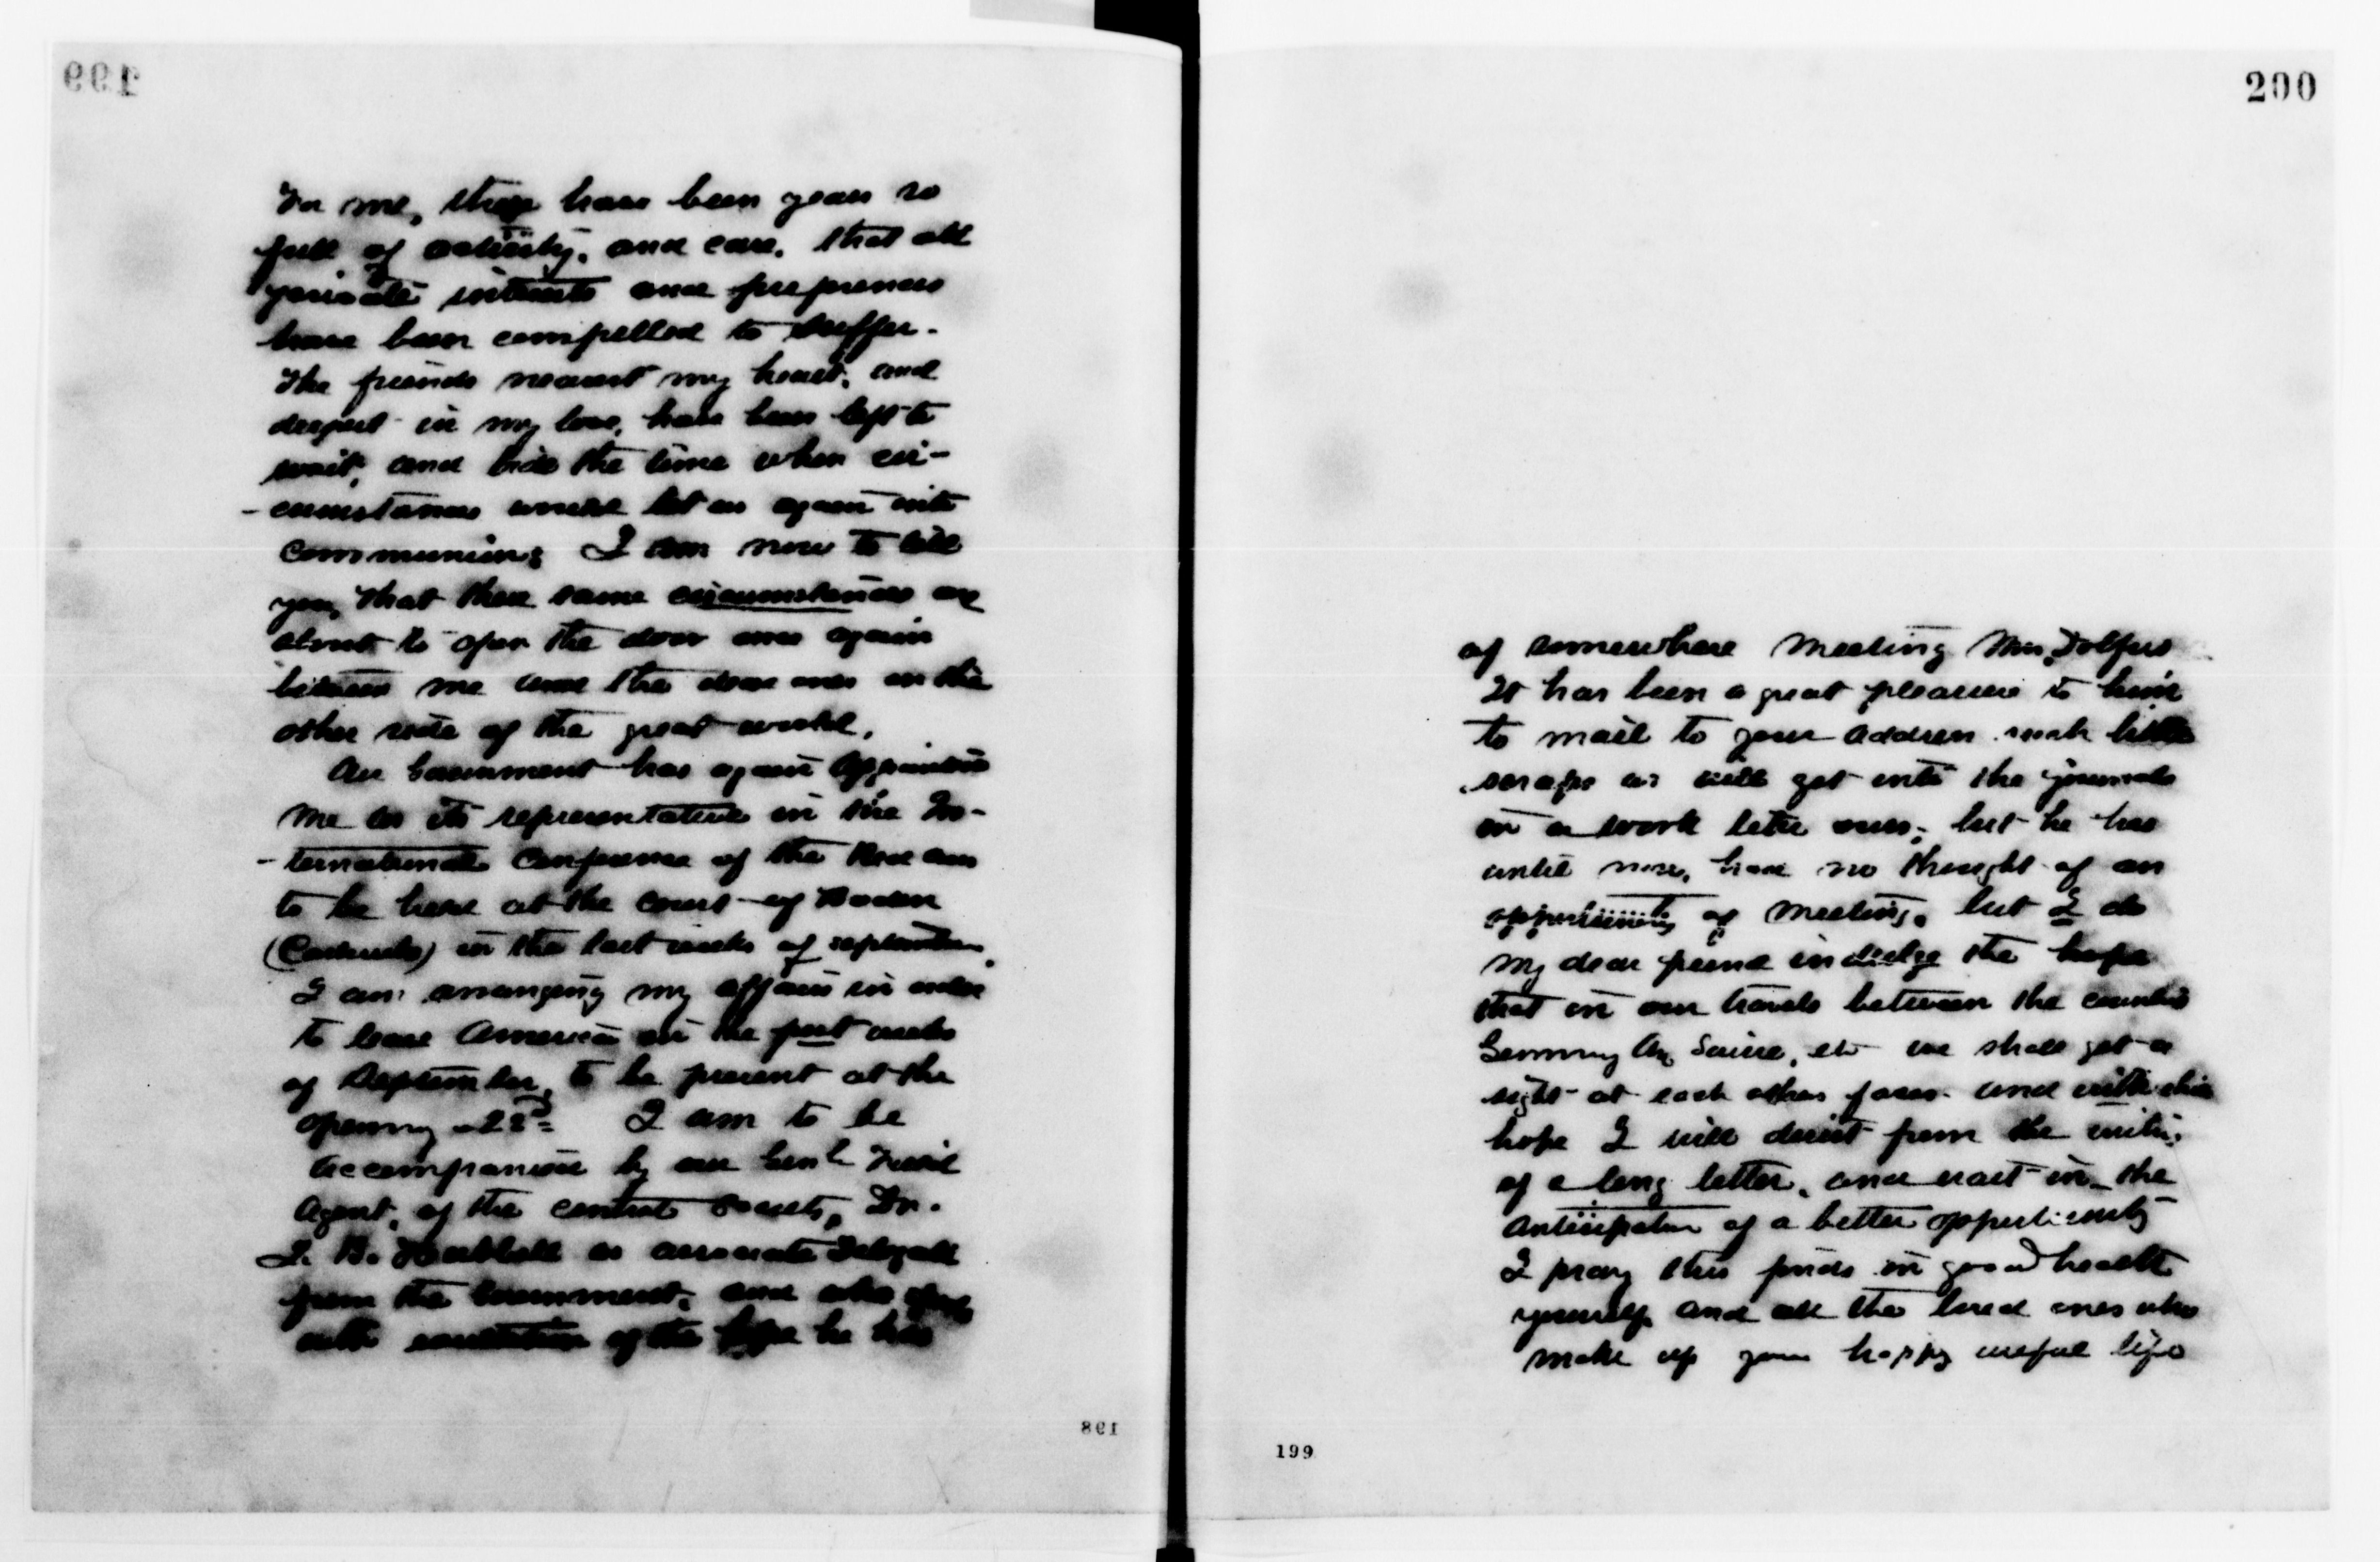 199
For me, these have been years so
full of activity, and care, that all
private interests and preferences
have been compelled to suffer.
The friends nearest my heart, and
deepest in my love, have been left to
wait, and bide the time when cir-
-cumstances would let us again into
communion; I am now to tell
you, that these same circumstances are
about to open the door once again
between me and the dear ones on the
other side of the great world.
Our Government has again appointed
me as its representative in the In-
-ternational Conference of the Red Cross
to be held at the Court of Baden
(Carlsruhe) in the last weeks of September.
I am arranging my affairs in order
to leave America in the first weeks
of September, to be present at the
opening 22d. I am to be
accompanied by our Genl Field
Agent, of the central society, Dr.
J. B. Hubbell as associate Delegate
from the Government, and who
with of the hope he has
198
200
of somewhere meeting Mrs. Dolfus
It has been a great pleasure to him
to mail to your address such little
scraps as will get into the journals
on a work like ours, but he has
until now, had no thought of an
opportunity of meeting, but I do
my dear friend indulge the hope
that in our travels between the countries
Germany &c we shall get a
sight at each others faces and with this
hope I will desist from the writing
of a long letter, and wait in the
anticipation of a better opportunity
I pray this finds in good health
yourself and all the loved ones who
make up your happy useful life
199